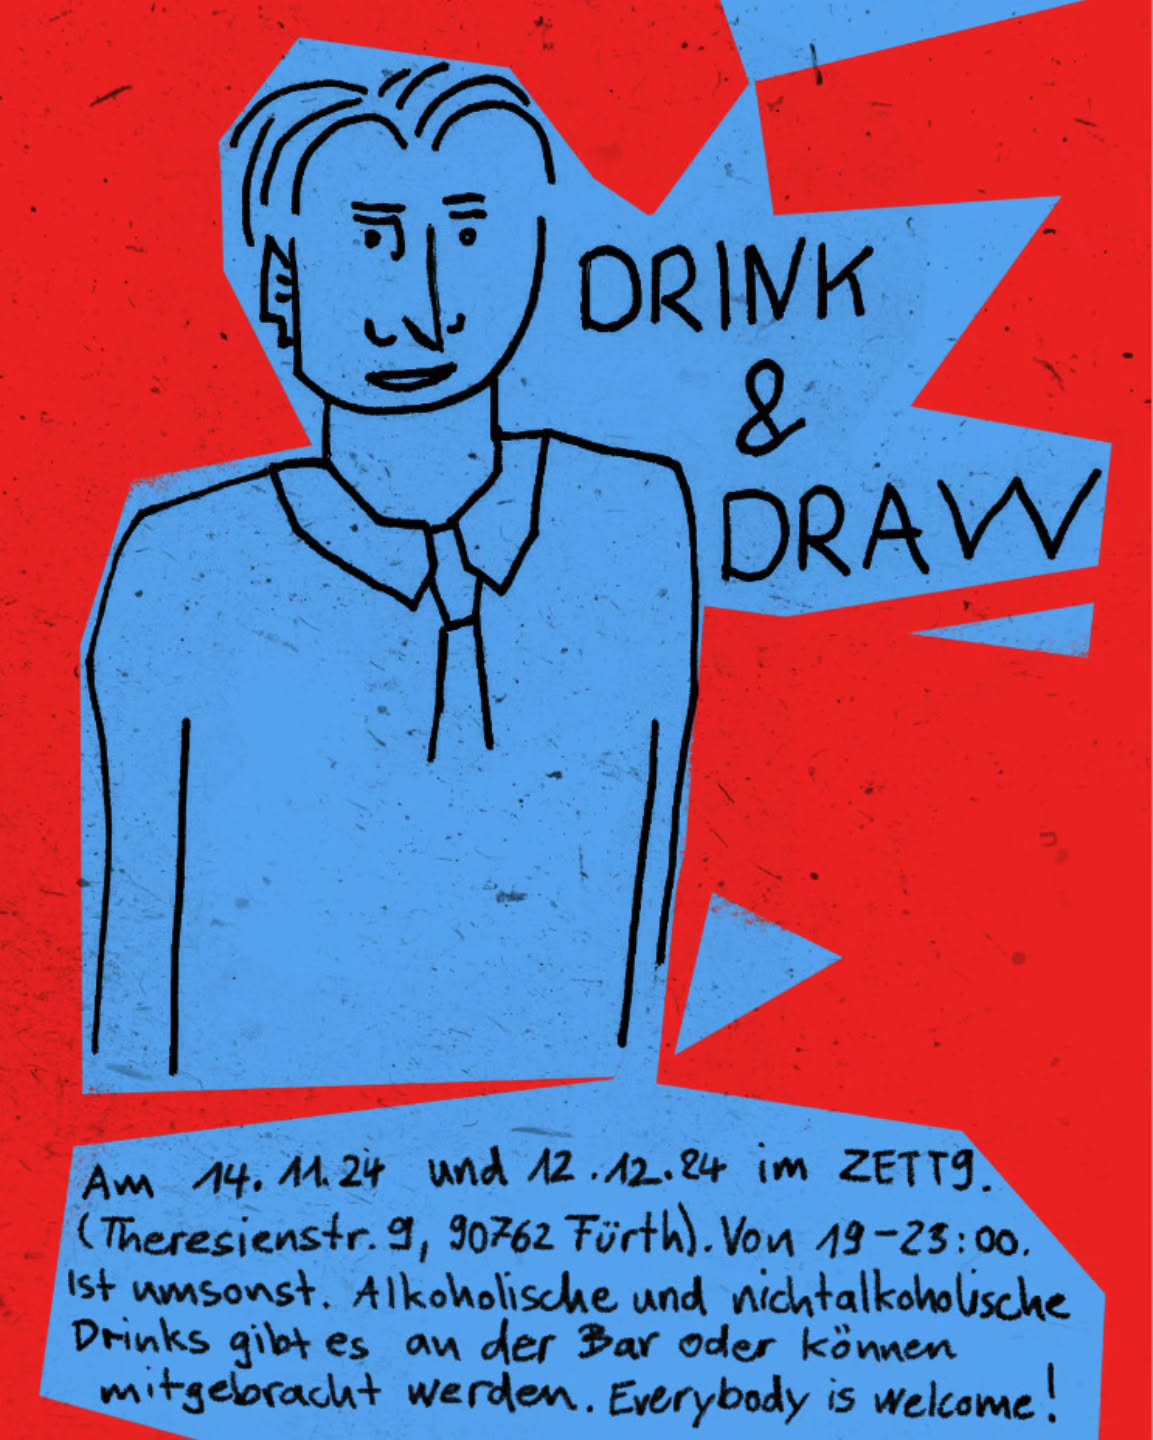 DRINK
&
DRAW
Am 14.11.24 und 12.12.24 im ZETT9.
(Theresienstr. 9, 90762 Fürth). Von 19-23:00.
Ist umsonst. Alkoholische und nichtalkoholische
Drinks gibt es an der Bar oder können
mitgebracht werden. Everybody is welcome!